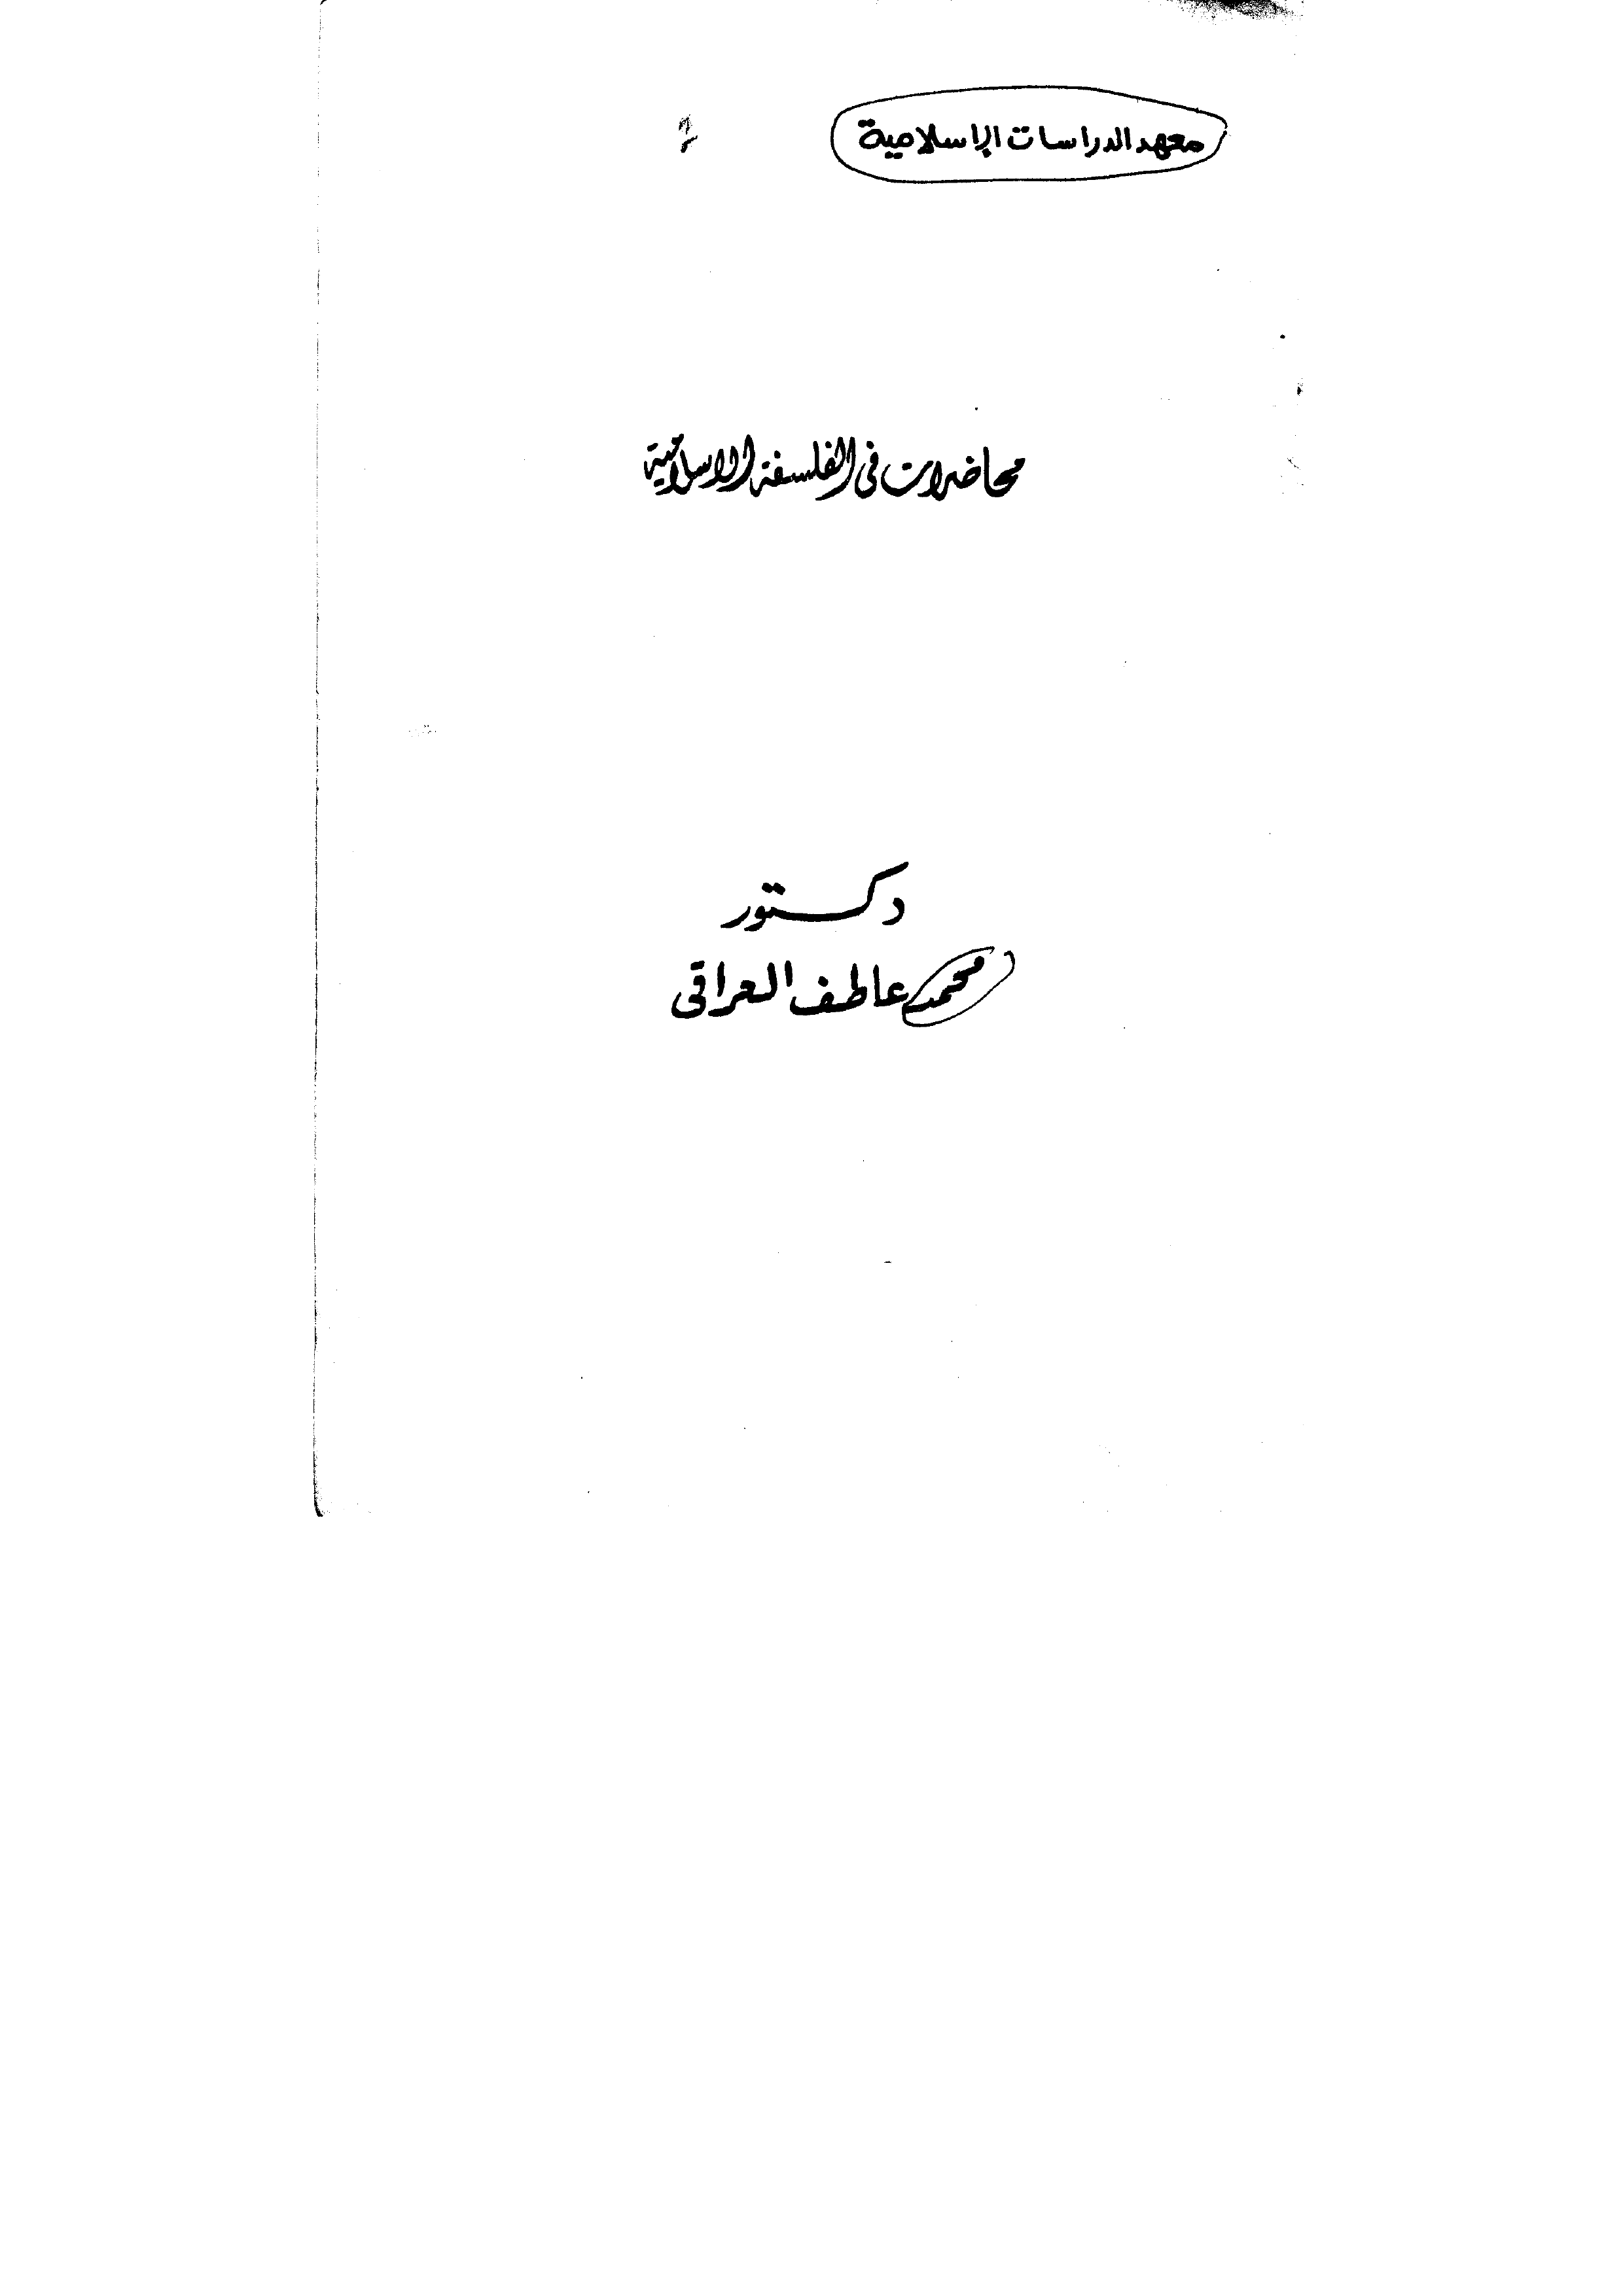 معهد الدراسات الإسلامية
محاضرات فى الفلسفة الاسلامية
دكتور
محمد عاطف العراقى